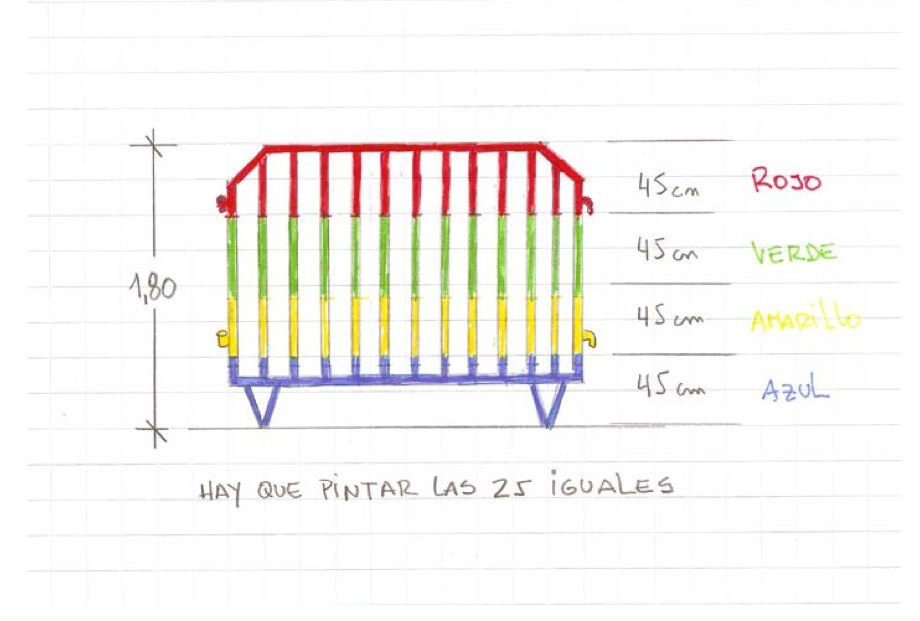 45cm ROJO
45 cm VERDE
1,80
45 cm AMARILLO
45 cm AZUL
HAY QUE PINTAR LAS 25 IGUALES